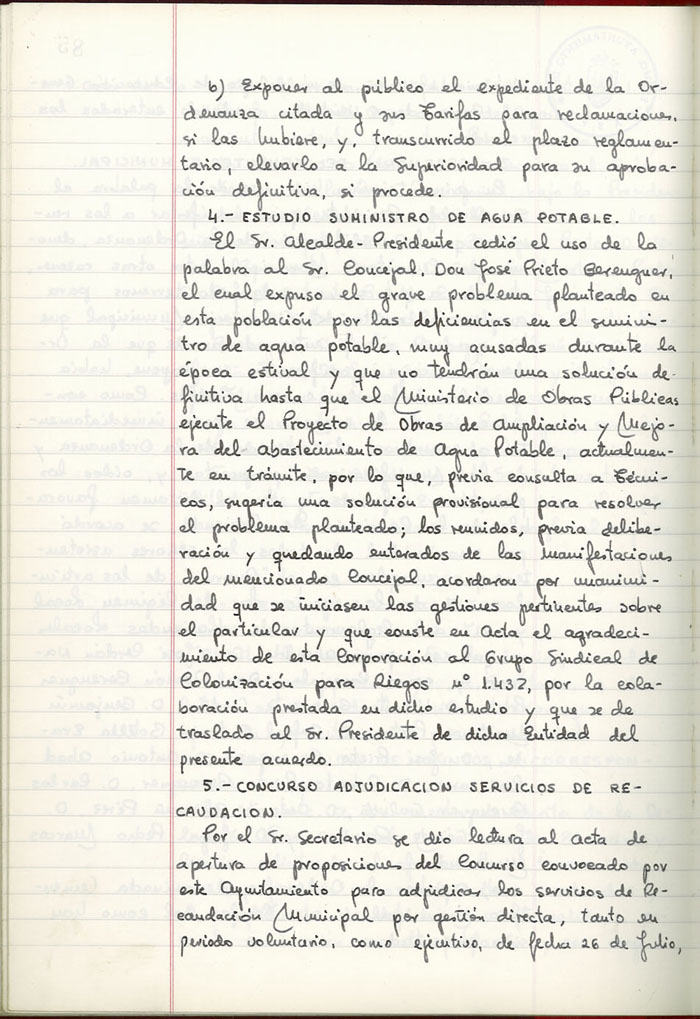 b) Exponer al público el expediente de la Or-
denanza citada y sus Tarifas para reclamaciones,
si las hubiere, y, transcurrido el plazo reglamen-
tario, elevarlo a la Superioridad para su aproba-
ción definitiva, si procede.
4.- ESTUDIO SUMINISTRO DE AGUA POTABLE.
El Sr. Alcalde-Presidente cedió el uso de la
palabra al Sr. Concejal, Don José Prieto Berenguer,
el cual expuso el grave problema planteado en
esta población por las deficiencias en el suminis-
tro de agua potable, muy acusadas durante la
época estival y que no tendrán una solución de-
finitiva hasta que el Ministerio de Obras Públicas
ejecute el Proyecto de Obras de Ampliación y Mejo-
ra del abastecimiento de Agua Potable, actualmen-
te en trámite, por lo que, previa consulta a Técni-
cos, sugería una solución provisional para resolver
el problema planteado; los reunidos, previa delibe-
ración y quedando enterados de las manifestaciones
del mencionado Concejal, acordaron por unanimi-
dad que se iniciasen las gestiones pertinentes sobre
el particular y que conste en Acta el agradeci-
miento de esta Corporación al Grupo Sindical de
Colonización para Riegos nº 1.432, por la cola-
boración prestada en dicho estudio y que se de
traslado al Sr. Presidente de dicha Entidad del
presente acuerdo.
5.- CONCURSO ADJUDICACION SERVICIOS DE RE-
CAUDACION.
Por el Sr. Secretario se dio lectura al acta de
apertura de proposiciones del Concurso convocado por
este Ayuntamiento para adjudicar los servicios de Re-
caudación Municipal por gestión directa, tanto en
periodo voluntario, como ejecutivo, de fecha 26 de Julio,